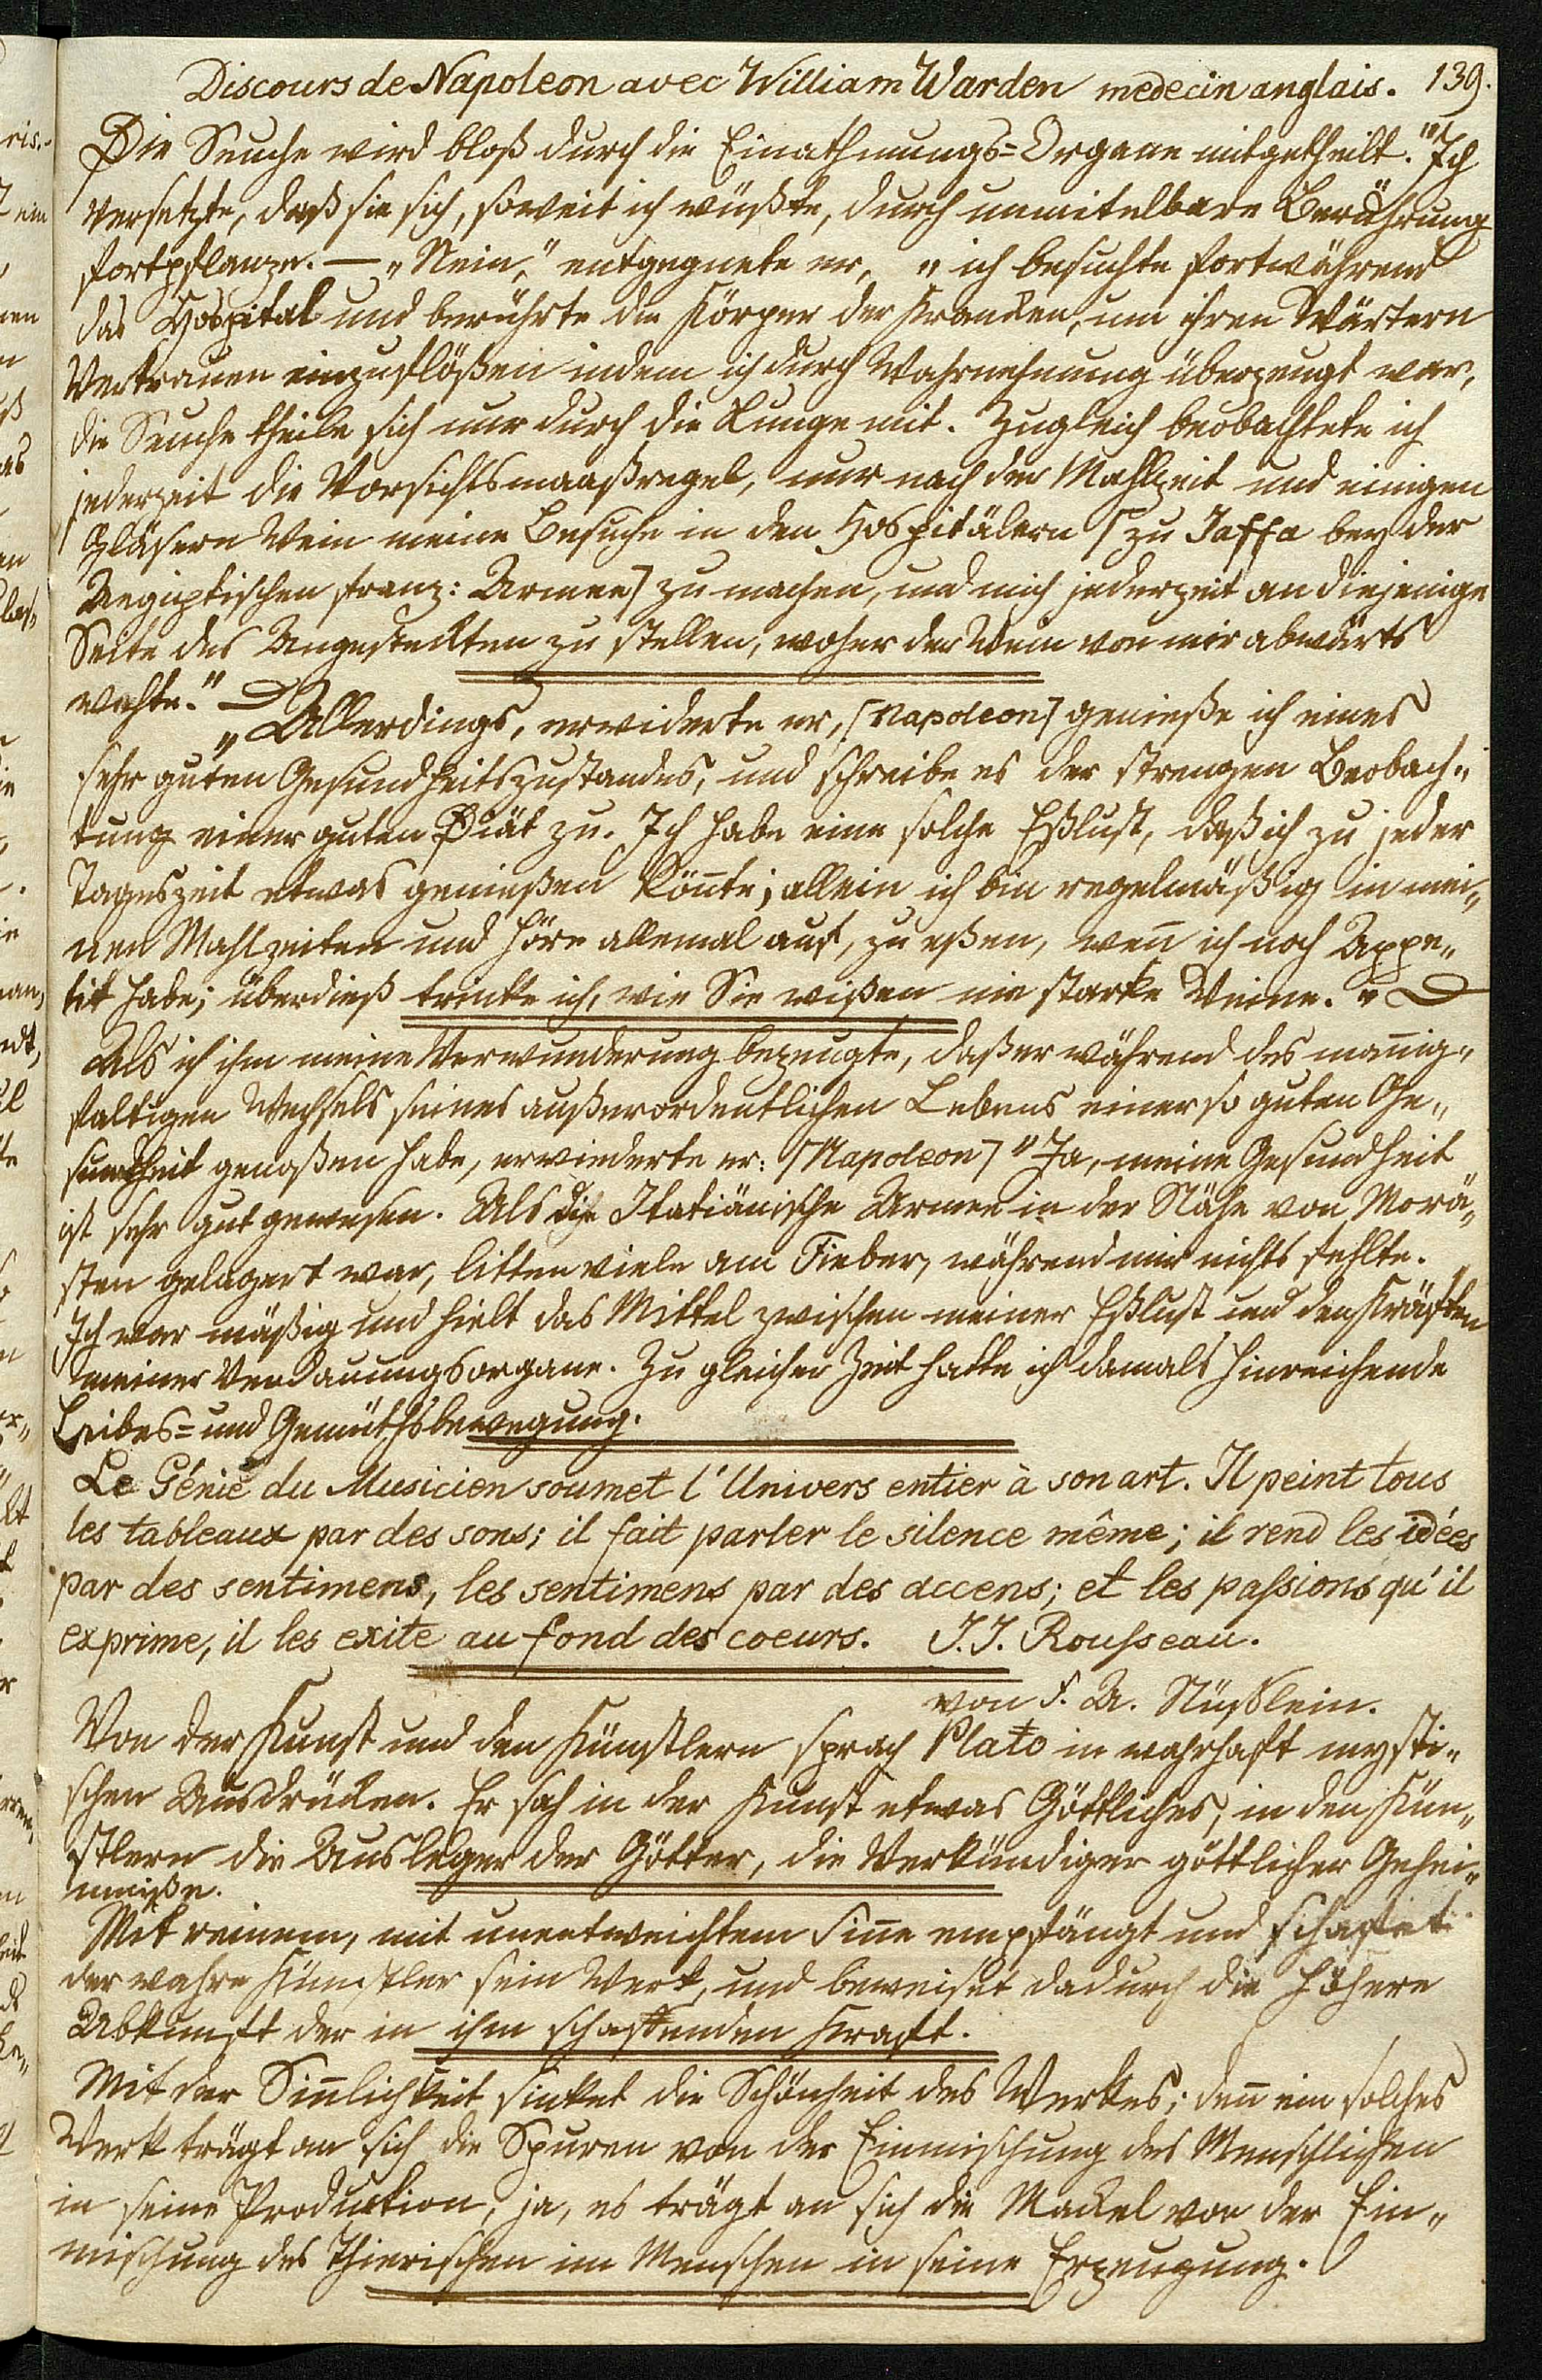 Discours de Napoleon avec William Warden medecin anglais. 139.
Die Seuche wird bloß durch die Einathmungs=Organe mitgetheilt." Ich
versetzte, daß sie sich, soweit ich wüßte, durch unmitelbare Berührung
fortpflanze. — „Nein," entgegnete er, „ich besuchte fortwährend
das Hospital und berührte die Körper der Kranken, um ihren Wärtern
Vertrauen einzuflößen indem ich durch Wahrnehmung überzeugt war,
die Seuche theile sich nur durch die Lunge mit. Zugleich beobachtete ich
jederzeit die Vorsichtsmaaßregel, nur nach der Mahlzeit und einigen
Gläsern Wein meine Besuche in den Hospitälern [zu Jaffa bey der
Aegiptischen franz: Armee] zu machen, und mich jederzeit an diejenige
Seite des Angesteckten zu stellen, woher der Wein von mir abwärts
wehte." —
„Allerdings, erwiderte er, [Napoleon] genieße ich eines
sehr guten Gesundheitszustandes, und schreibe es der strengen Beobach„
tung einer guten Diät zu. Ich habe eine solche Eßlust, daß ich zu jeder
Tageszeit etwas genießen kön̄te; allein ich bin regelmäßig in mei„
nen Mahlzeiten und höre allemal auf, zu eßen, wen̄ ich noch Appe„
tit habe; überdieß trinke ich, wie Sie wißen nie starke Weine." —
Als ich ihm meine Verwunderung bezeugte, daß er während des man̄ig„
faltigen Wechsels seines außerordentlichen Lebens einer so guten Ge„
sundheit genoßen habe, erwiederte er: [Napoleon] "Ja, meine Gesundheit
ist sehr gut gewesen. Als die Italiänische Armee in der Nähe von Morä„
sten gelagert war, litten viele am Fieber, während mir nichts fehlte.
Ich war mäßig und hielt das Mittel zwischen meiner Eßlust und den Kräften
meiner Verdauungsorgane. Zu gleicher Zeit hatte ich damals hinreichende
Leibes= und Gemüthsbewegung.
Le Génie du Musicien soumet l'Univers entier à son art. Il peint tous
les tableaux par des sons; il fait parler le silence même; il rend les idées
par des sentimens, les sentimens par des accens; et les passions qu'il
exprime, il les exite au fond des coeurs. J. J. Rousseau.
von F. A. Nüßlein.
Von der Kunst und den Künstlern sprach Plato in wahrhaft mysti„
schen Ausdrüken. Er sah in der Kunst etwas Göttliches, in den Kün„
stlern die Ausleger der Götter, die Verkündiger göttlicher Gehei„
mniße.
Mit reinem, mit unentweichtem Sin̄e empfängt und schaffet
der wahre Künstler sein Werk, und beweiset dadurch die höhere
Abkunft der in ihm schaffenden Kraft.
Mit der Sin̄lichkeit sinket die Schönheit des Werkes; den̄ ein solches
Werk trägt an sich die Spuren von der Einmischung des Menschlichen
in seine Produktion, ja, es trägt an sich die Mackel von der Ein„
mischung des Thierischen im Menschen in seine Erzeugung.